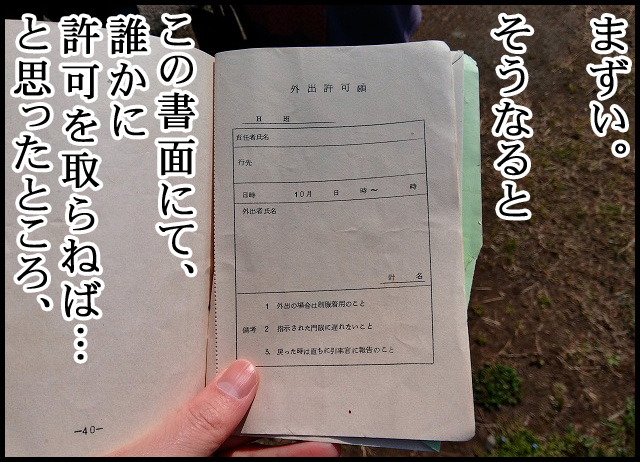 まずい。
そうなると
この書面にて、
誰かに
許可を取らねば…
と思ったところ、
外出許可願
H 班
責任者氏名
行先
日時 10月 日 時～ 時
外出者氏名
計 名
備考
1 外出の場合は制服着用のこと
2 指示された門限に遅れないこと
3. 戻った時は直ちに引率官に報告のこと
－40－